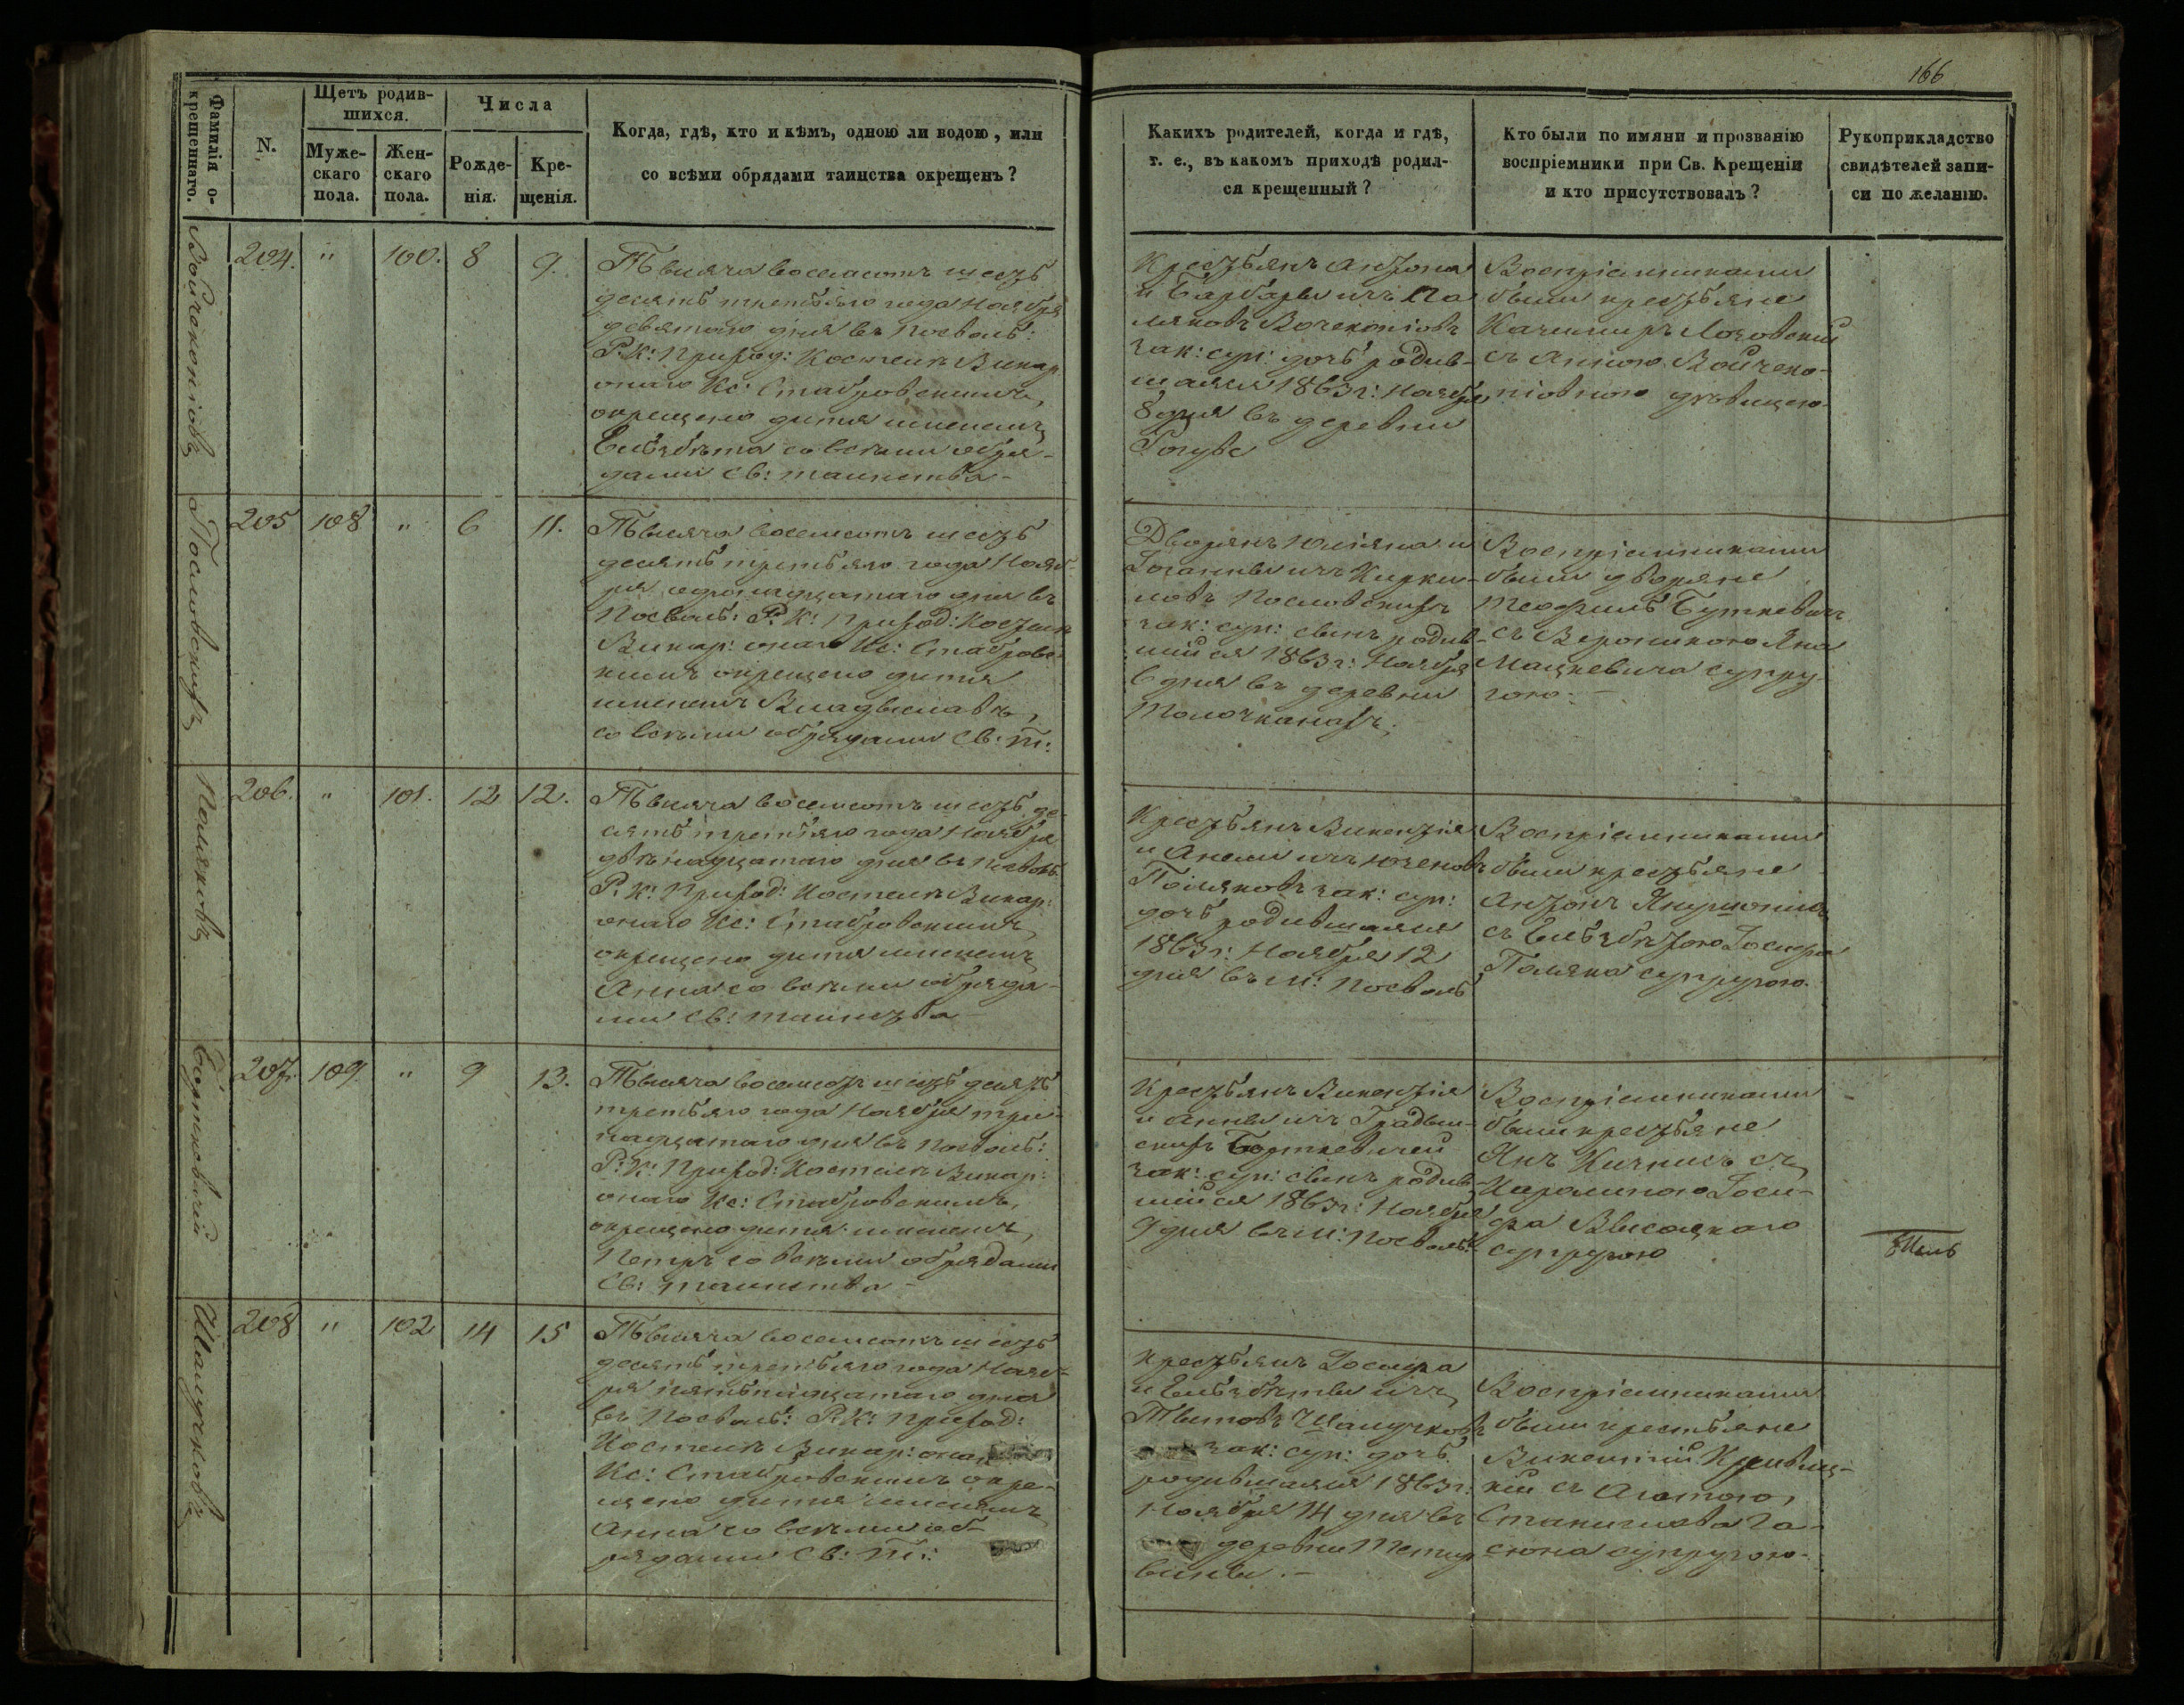 166
Фамилія о-
крещеннаго.
N.
Щетъ родив-
шихся.
Муже-
скаго
пола.
Жен-
скаго
пола.
Числа
Рожде-
нія.
Кре-
щенія.
Когда, гдѣ, кто и кѣмъ, одною ли водою, или
со всѣми обрядами таинства окрещенъ?
Какихъ родителей, когда и гдѣ,
т. е., въ какомъ приходѣ родил-
ся крещенный?
Кто были по имяни и прозванію
воспріемники при Св. Крещеніи
и кто присутствовалъ?
Рукоприкладство
свидѣтелей запи-
си по желанію.
204.
"
100.
8
9.
Тысяча восемсотъ шесть
десятъ третьяго года Ноября
девятаго дня въ Посволь:
Р: К: Приход: Костелѣ Викар:
онаго Кс: Стабровскимъ,
окрещено дитя именемъ
Елисабета со всѣми обря-
дами Св: таинства-
Крестьянъ Антона
и Барбары изъ По
ляковъ
зак: суп: дочь родив-
шаяся 1863 г: Ноября
8 дня въ деревни
Воспріемниками
были крестьяне
Казимиръ
съ Анною Войчеко-
ніовною дѣвицею-
Пословскихъ
205
108
"
6
11.
Тысяча восемсотъ шесть
десятъ третьяго года Нояб-
ря одиннадцатаго дня въ
Посволь: Р: К: Приход: Костелѣ
Викар: онаго Кс: Стабровс-
кимъ окрещено дитя
именемъ Владыславъ,
со всѣми обрядами Св: Т:
Дворянъ Юліяна и
Іоганны изъ Кирки-
ловъ Пословскихъ
зак: суп: сынъ родив-
шійся 1863 г: Ноября
6 дня въ деревни
Толочканахъ.
Воспріемниками
были дворяне
Теофиль Буткевичъ
съ Вероникою Яна
Мацкевича супру-
гою.-
Поляковъ
206.
"
101.
12
12.
Тысяча восемсотъ шесть де-
сятъ третьяго года Ноября
двѣнадцатаго дня въ Посволь:
Р: К: Приход: Костелѣ Викар:
онаго Кс: Стабровскимъ,
окрещено дитя именемъ
Анна со всѣми обряда-
ми Св: таинства-
Крестьянъ Викентія
и Анели изъ
Поляковъ зак: суп:
дочь родившаяся
1863 г: Ноября 12
дня въ м: Посволь
Воспріемниками
были крестьяне
Антонъ
съ Елисабетою Іосифа
Поляка супругою.
207.
109.
"
9
13.
Тысяча восемсотъ шесть десятъ
третьяго года Ноября три-
надцатаго дня въ Посволь:
Р: К: Приход: Костелѣ Викар:
онаго Кс: Стабровскимъ,
окрещено дитя именемъ,
Петръ со всѣми обрядами
Св: таинства-
Крестьянъ Викентія
и Анны изъ Градыс-
скихъ
зак: суп: сынъ родив-
шійся 1863 г: Ноября
9 дня въ м: Посволь:
Воспріемниками
были крестьяне
Янъ Кичкисъ съ
Каролиною Іоси-
фа Высоцкаго
супругою
208
"
102
14
15
Тысяча восемсотъ шесть
десятъ третьяго года Нояб-
ря пятьнадцатаго дня
въ Посволь: Р: К: Приход:
Костелѣ Викар:
Кс: Стабровскимъ окре-
щено дитя именемъ
Анна со всѣми об-
рядами Св: Т:
Крестьянъ Іосифа
и Елисабеты изъ
Тытовъ
зак: суп: дочь
родившаяся 1863 г:
Ноября 14 дня въ
деревни
Воспріемниками
были крестьяне
Викентій Кривиц-
кій съ Агатою,
Станислава Га-
сюна супругою-